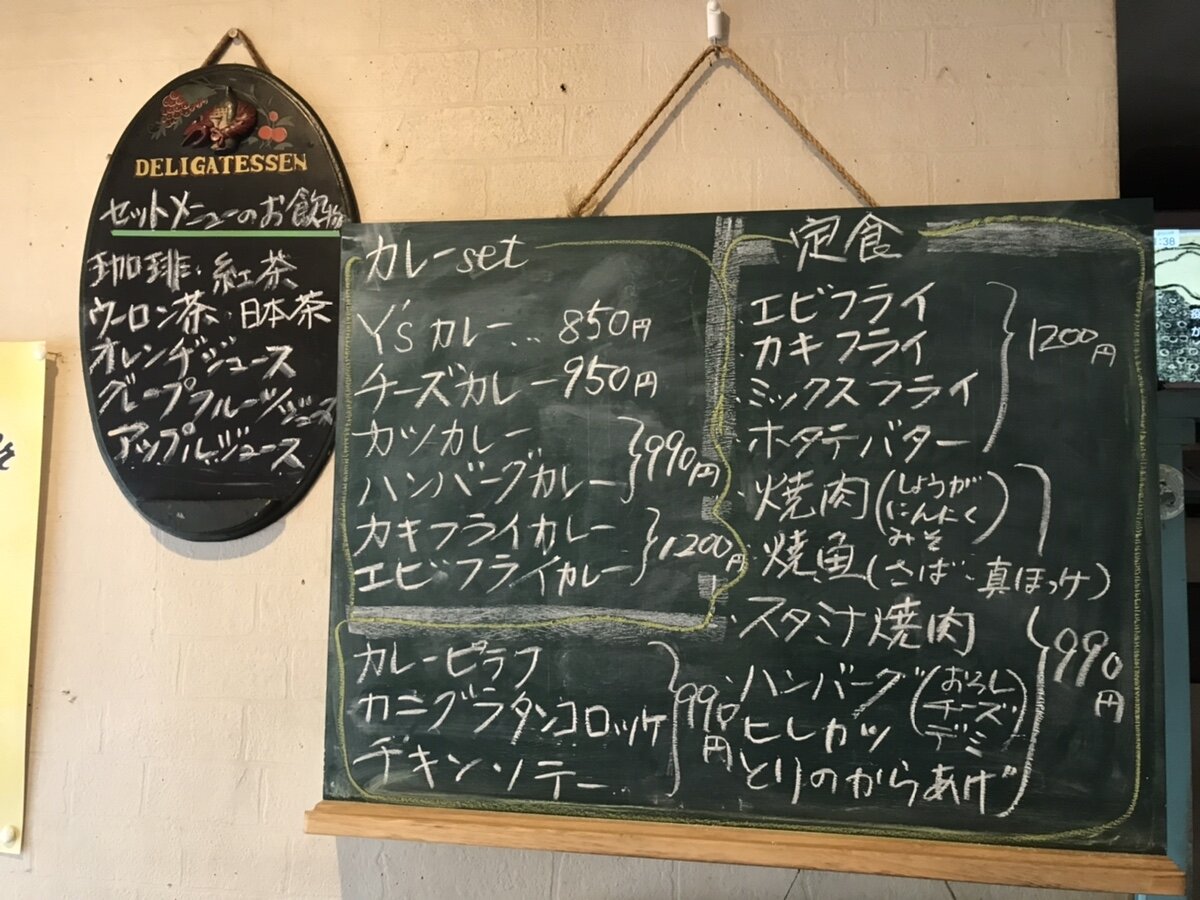 DELIGATESSEN
セットメニューのお飲物
珈琲・紅茶
ウーロン茶・日本茶
オレンヂジュース
グレープフルーツジュース
アップルジュース
カレーset
Y'sカレー…850円
チーズカレー950円
カツカレー
ハンバーグカレー
990円
カキフライカレー
エビフライカレー
1200円
カレーピラフ
カニグラタンコロッケ
チキンソテー
990円
定食
・エビフライ
・カキフライ
・ミックスフライ
・ホタテバター
1200円
・焼肉(しょうが
にんにく
みそ)
・焼魚(さば・真ほっけ)
・スタミナ焼肉
・ハンバーグ(おろし
チーズ
デミ)
・ヒレカツ
・とりのからあげ
990円